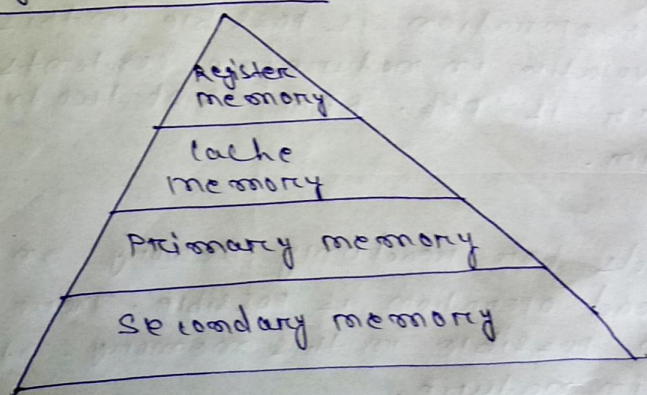 Register
memory
Cache
memory
Primary memory
Secondary memory